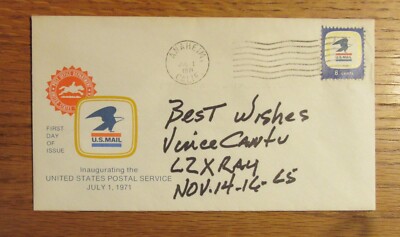 ANAHEIM
JUL 1
1971
CALIF.
8 cents
U.S. MAIL
FIRST
DAY
OF
ISSUE
Inaugurating the
UNITED STATES POSTAL SERVICE
JULY 1, 1971
Best Wishes
Vince Cantu
LZ XRAY
NOV. 14-16-65